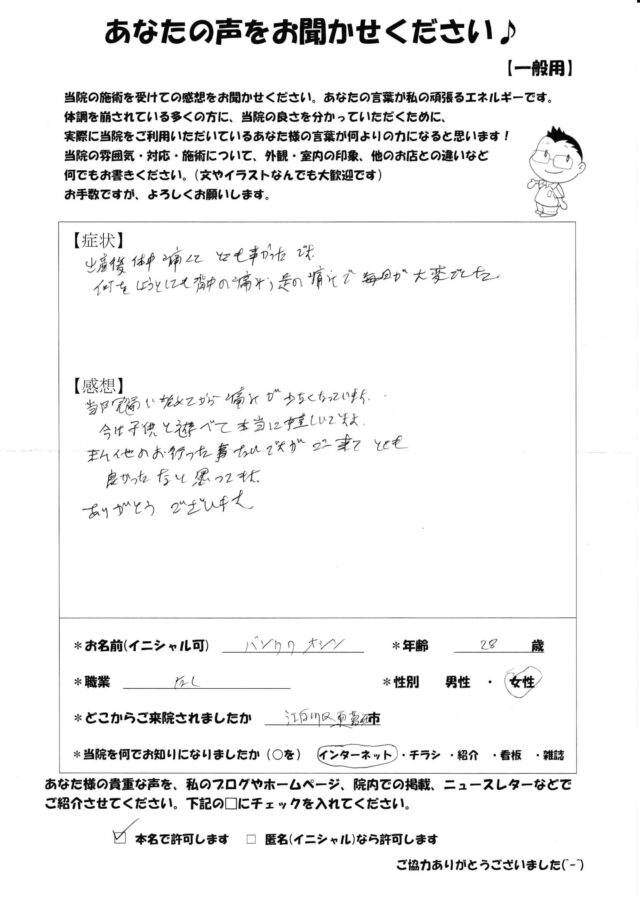 あなたの声をお聞かせください♪
【一般用】
当院の施術を受けての感想をお聞かせください。あなたの言葉が私の頑張るエネルギーです。
体調を崩されている多くの方に、当院の良さを分かっていただくために、
実際に当院をご利用いただいているあなた様の言葉が何よりの力になると思います！
当院の雰囲気・対応・施術について、外観・室内の印象、他のお店との違いなど
何でもお書きください。(文やイラストなんでも大歓迎です)
お手数ですが、よろしくお願いします。
【症状】
出産後 体中痛くて とても辛かったです
何をしようとしても背中の痛み、足の痛みで 毎日が 大変でした
【感想】
始めてから 痛みが 少なくなっています
今は子供と遊べて 本当に嬉しいですよ
行った事ないですが ここ来て とても
良かったなと思ってます
ありがとう ございます
＊お名前(イニシャル可) バンクワ オシン ＊年齢 28 歳
＊職業 なし ＊性別 男性 ・ 女性
＊どこからご来院されましたか 江戸川区 市
＊当院を何でお知りになりましたか (○を) インターネット ・チラシ ・紹介 ・看板 ・雑誌
あなた様の貴重な声を、私のブログやホームページ、院内での掲載、ニュースレターなどで
ご紹介させてください。下記の□にチェックを入れてください。
☑ 本名で許可します □ 匿名(イニシャル)なら許可します
ご協力ありがとうございました(^-^)